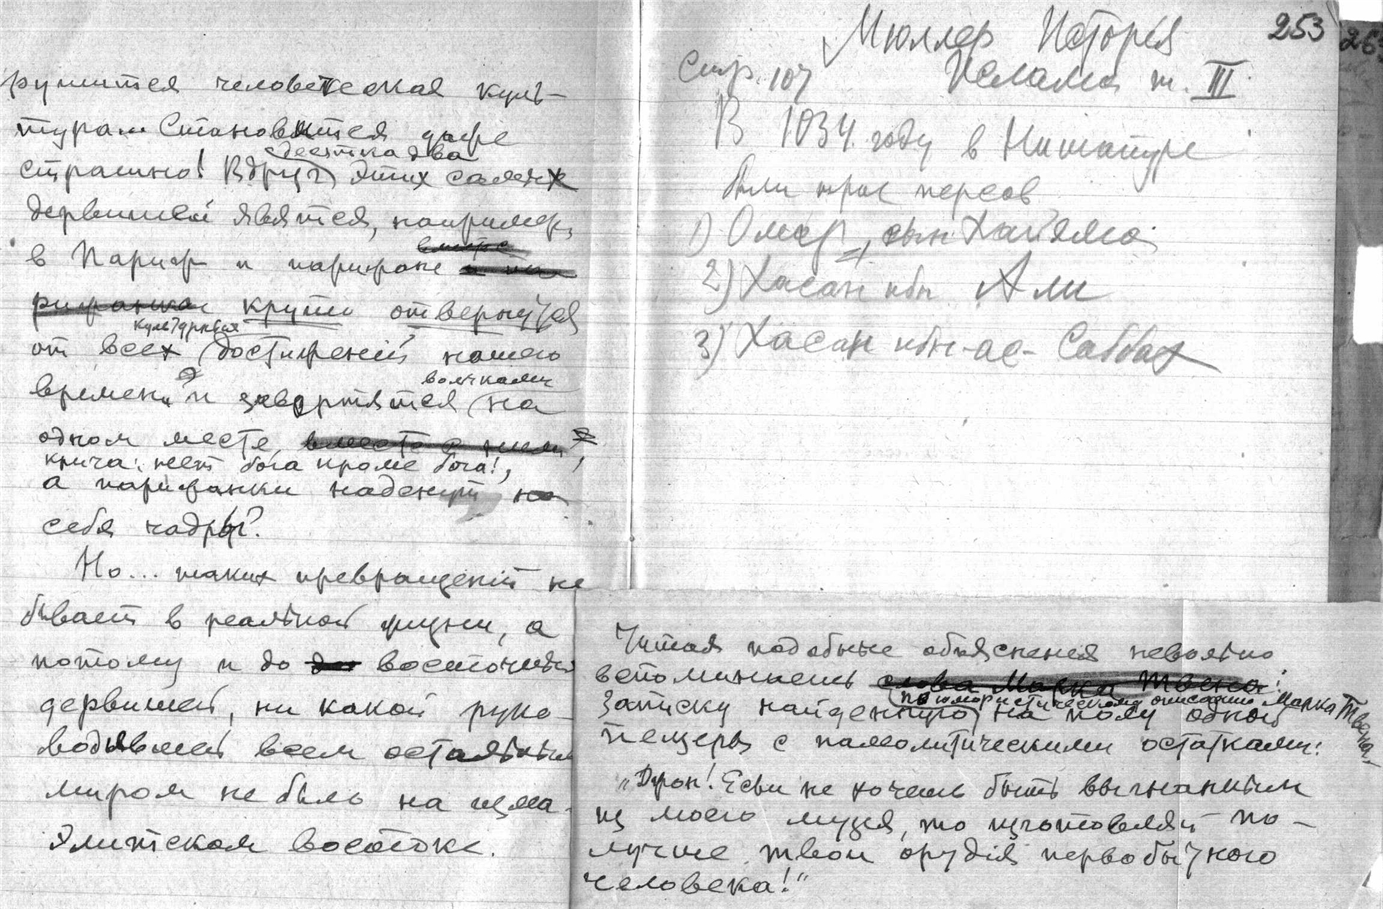 рушится человеческая куль-
тура. Становится даже
страшно! Вдруг десятка два этих самых
дервишей явятся, например,
в Париж и парижане
круто отвернутся
от всех культурных достижений нашего
времени и завертятся волчками на
одном месте
крича: нет бога кроме бога!,
а парижанки наденут на
себя чадры?
Но... таких превращений не
бывает в реальной жизни, а
потому и до восточных
дервишей, ни какой руко-
водившей всем остальным
миром не было на изма-
элитском востоке.
253
Мюллер История
Стр. 107 Ислама т. III
В 1034 году в Нишапуре
были трое персов
1) Омар, сын Хайяма
2) Хасан ибн Али
3) Хасан ибн-ас-Саббах
Читая подобные объяснения невольно
вспоминаешь слова Марка Твена:
Записку найденную по юмористическому описанию Марка Твена на полу одной
пещеры с палеолитическими остатками:
"Джон! Если не хочешь быть выгнанным
из моего музея, то изготовляй по-
лучше твои орудия первобытного
человека!"